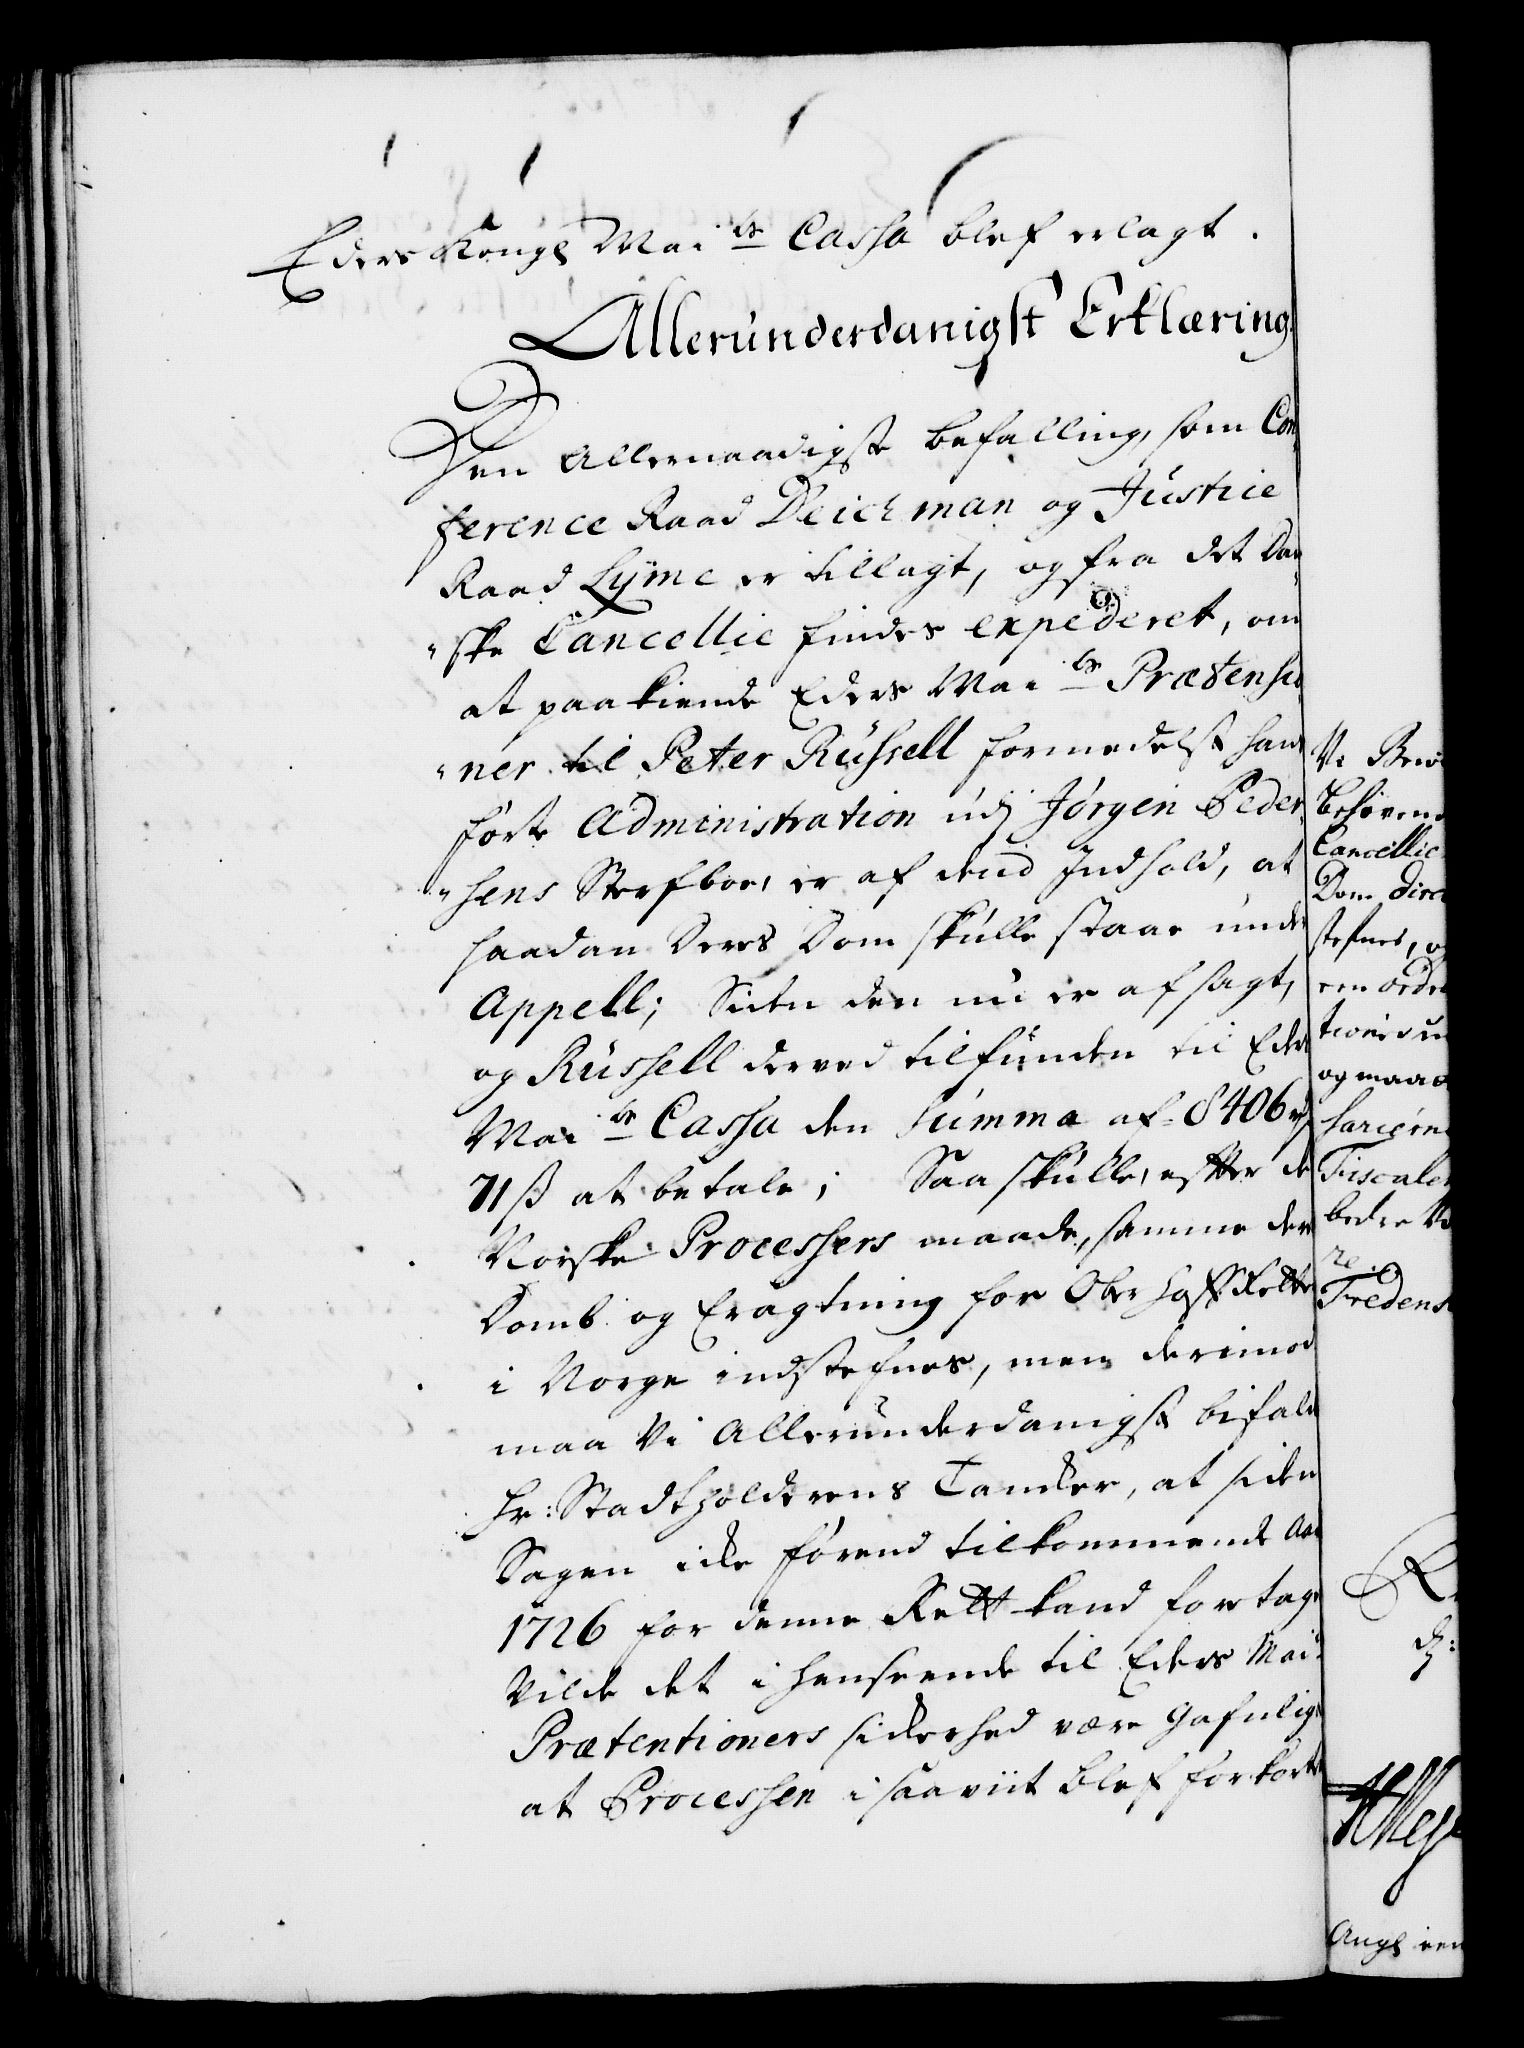 Eders Kongl Mai ts Cassa blef erlagt.
Allerunderdanigst Erklæring.
Den Allernaadigste befalling, som Con
ference Raad Deichman og Justice
Raad Lÿme er tillagt, og fra det Dan
"ske Cancellie findes expederet, om
at paakiende Eders Mai ts Prætensio
"ner til Peter Russell formedelst hans
førte Administration udj Jørgen Peder
"sens Sterfboe, er af deud Indhold, at
saadan Deres Dom skulle staae under
Appell; Siden den nu er afsagt,
og Russell derved tilfunden til Eders
Mai ts Cassa den Summa af 8406 rd
71 ß at betale; Saa skulle, efter de
Norske Processers maade, samme deres
Domb og Eragtning for Ober Hoff Retten
i Norge indstefnes, men derimod
maa Vi Allerunderdanigst bifalde
Hr: Stadtholderens Tanker, at siden
Sagen icke førend tilkommende Aar
1726 for denne Rett kand foretages
Vilde det i henseende til Eders Mai ts
Prætentioners sickerhed være gafnligt
at Processen i saaviit blef forkortet
Vi
behøvend
Cancellie
Dom direc
stefnes, og
een ordre
og maa
Fiscalen
bedre
Fredens
Angl een